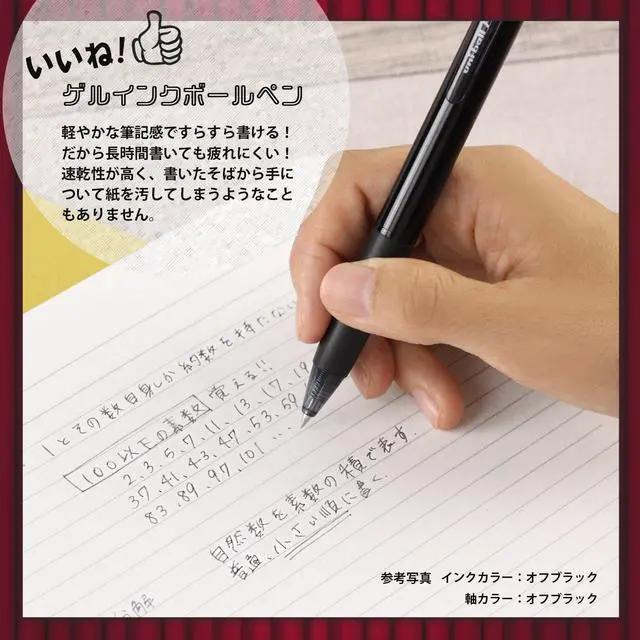 いいね!
ゲルインクボールペン
軽やかな筆記感ですらすら書ける!
だから長時間書いても疲れにくい!
速乾性が高く、書いたそばから手に
ついて紙を汚してしまうようなこと
もありません。
uniball
1とその数自身しか約数を持たない
100以下の素数 覚える!!
2.3.5.7.11.13.17.19
37.41.43.47.53.59
83.89.97.101...
自然数を素数の積で表す.
普通、小さい順に書く.
分解
参考写真 インクカラー:オフブラック
軸カラー:オフブラック